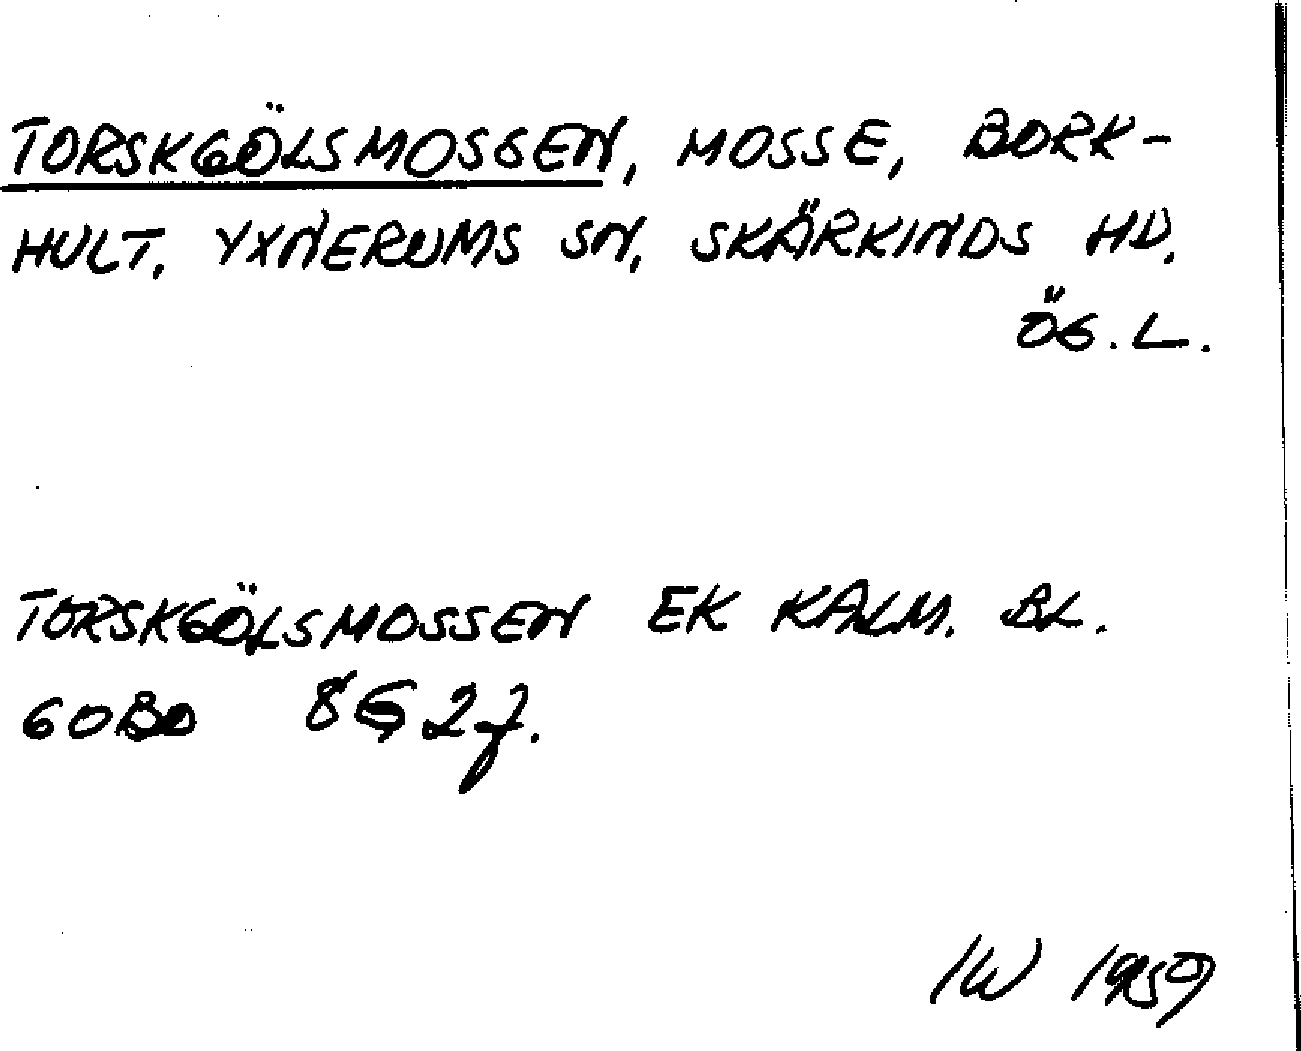 TORSKGÖLSMOSSEN, MOSSE, BORK-
HULT. YXNERUMS SN, SKÄRKINDS HD.
ÖG. L.
TORSKGÖLSMOSSEN EK KALM. BL.
60BD 8G2f.
IW 1959